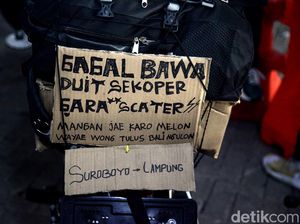 GAGAL BAWA
DUIT SEKOPER
GARA** SCATER
MANGAN JAE KARO MELON
WAYAE WONG TULUS BALI NGULON
SUROBOYO → LAMPUNG
detikcom